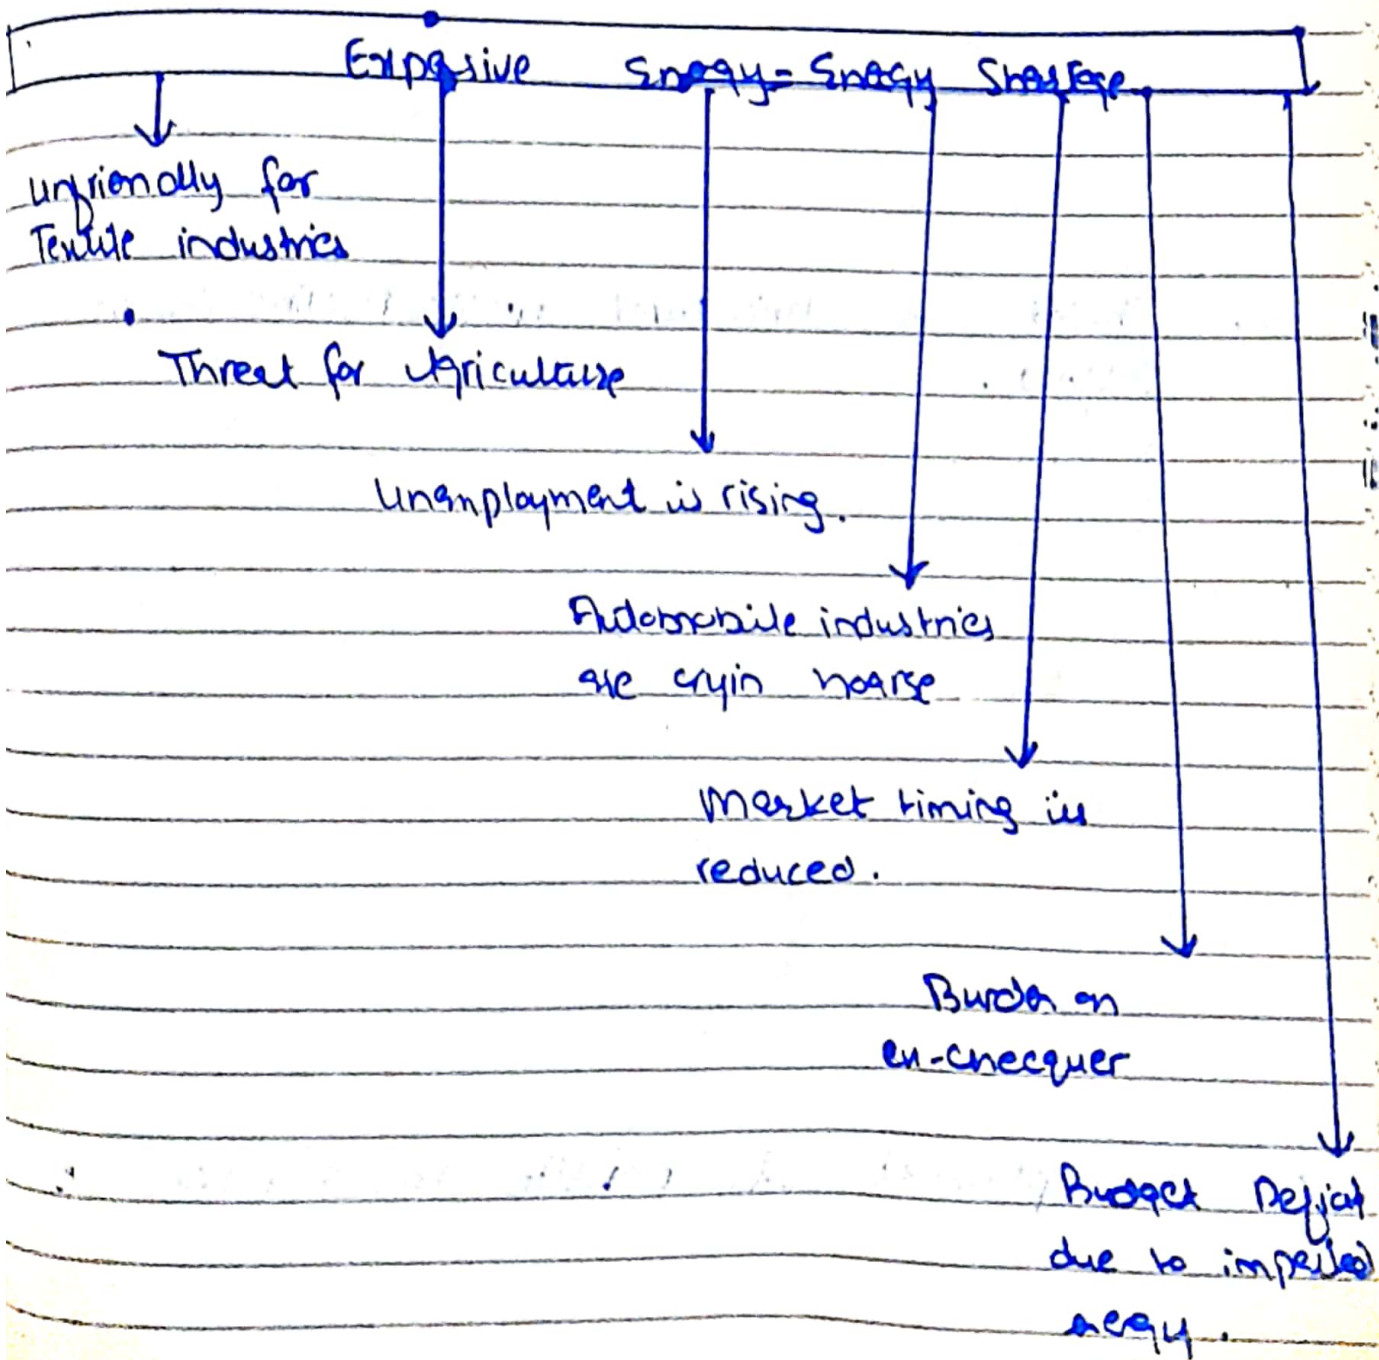 Expesive Enegy = Enegy Shortage
unfriendly for
Textile industries
Threat for Agriculture
Unemployment is rising.
Automobile industries
are cryin hoarse
Market timing is
reduced.
Burden on
ex-checquer
Budget Deficit
due to imported
energy.